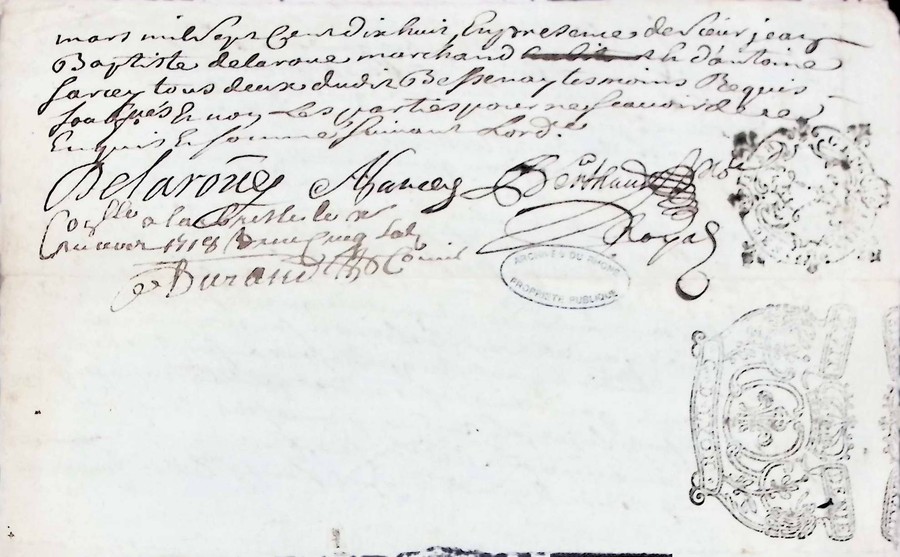 mars mil sept Cent dix huit, En presence de Sieur jean
Baptiste delaroue marchand & d'antoine
Sarcey tous deux dudit Bessenay tesmoins Requis
Soubsnés & non Les parties pour ne scavoir de ce
Enquis & sommé suivant Lord.e
Delaroüe ASarcey Berthaud
Royal
Con.lle a la bresle le
1718 Receu Cinq sols
Durand Comis
ARCHIVES DU RHONE
PROPRIETE PUBLIQUE